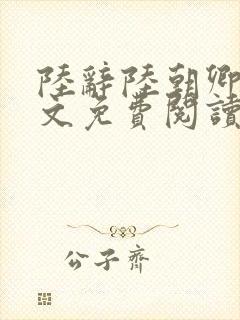 陸辭陸朝卿
文免費閱讀
公子齊